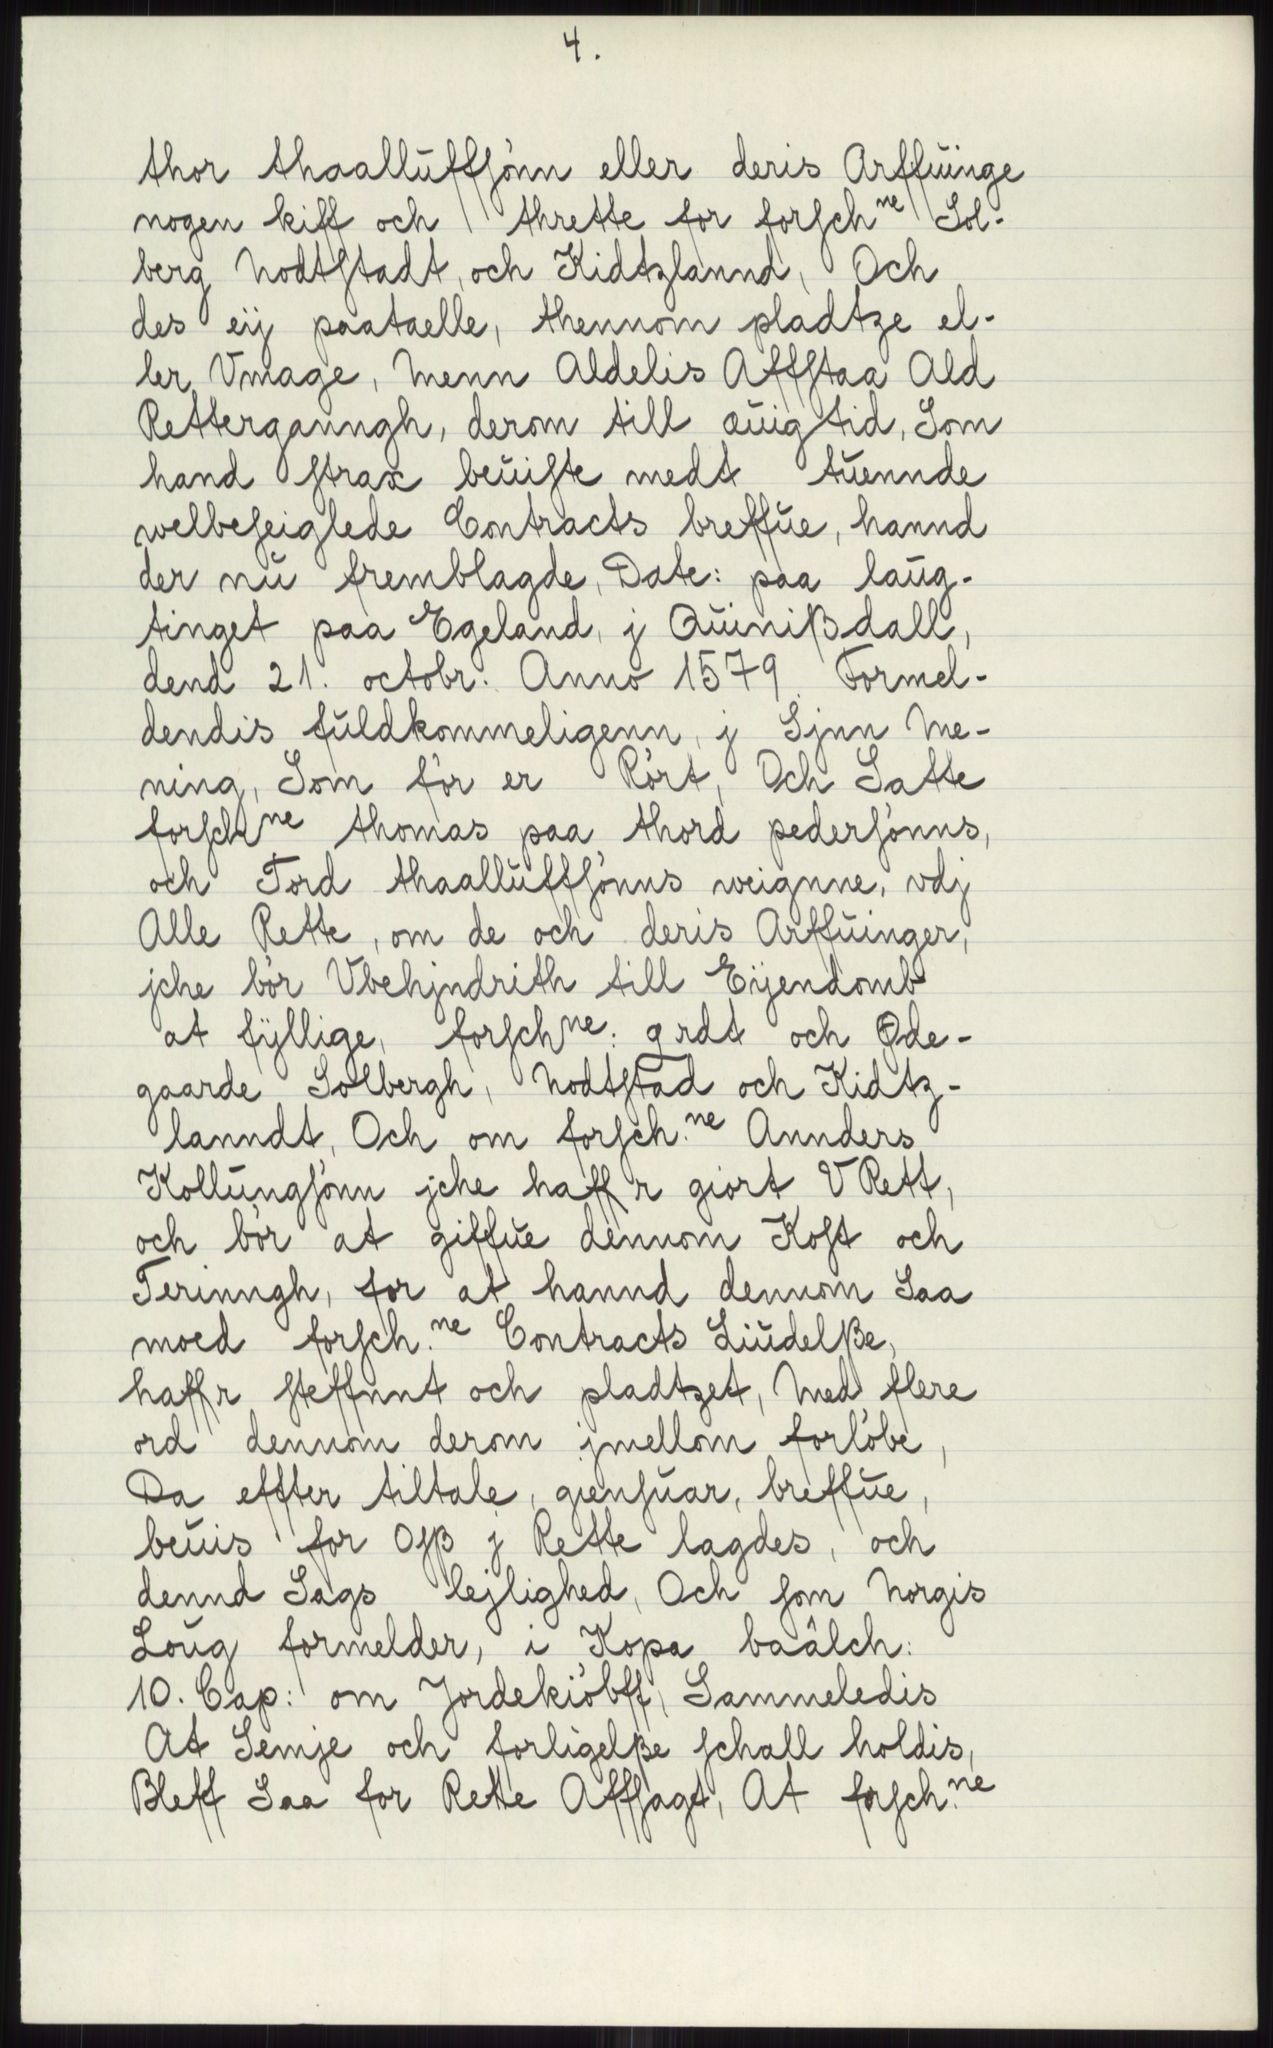 4.
thor thaallŭffſönn eller deris Arffŭinge
nogen kiff och thrette for forſchne Sol-
berg Nodtſtadt, och Kidtzlannd, Och
des eÿ paataelle, thennom pladtze el-
ler Vmage, Menn Aldelis Affſtaa Ald
Retterganngh, derom till æŭig tid, Som
hand ſtrax beŭiſte medt tŭennde
welbeſeiglede Contracts breffŭe, hannd
der nŭ fremblagde, Date: paa laŭg-
tinget paa Egeland, j Qŭinißdall,
dend 21. octobr: Anno 1579 Formel-
dendis fŭldkommeligenn, j Sjnn Me-
ning, Som för er Rört, Och Satte
forſchne thomas paa thord pederſönns,
och Tord thaallŭffſönns weignne, vdj
Alle Rette, om de och deris Arffŭinger,
jche bör Vbehjndrith till Eÿendomb
at fÿllige, forſchne: grdt och Øde-
gaarde Solbergh, Nodtſtad och Kidtz-
lanndt, Och om forſch.ne Annders
Kollŭngſönn jche haffr giort V Rett,
och bör at giffŭe dennom Koſt och
Terinngh, for at hannd dennom Saa
moed forſch.ne Contracts Liŭdelße,
haffr ſteffnnt och pladtzet, Med flere
ord dennom derom jmellom forlöbe,
Da effter tiltale, gienſŭar, breffŭe,
beŭis for Oſß j Rette lagdes, och
dennd Sags lejlighed, Och ſom Norgis
Loŭg formelder, i Kopa baâlch:
10. Cap: om Jordekiöbff, Sammeledis
At Semje och forligelße ſchall holdis,
Bleff Saa for Rette Affſagt, At forſch.ne